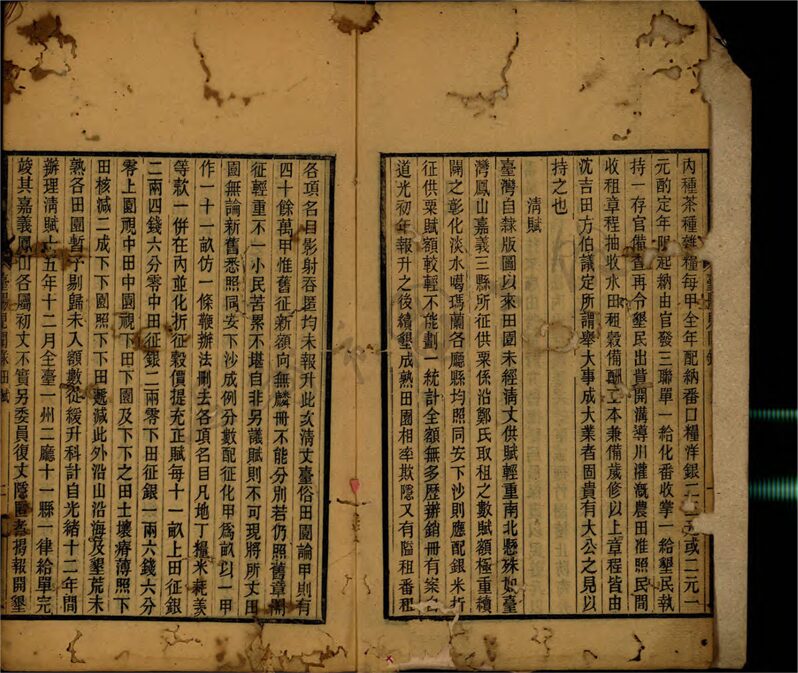 內種茶種雜糧每甲全年配納番口糧洋銀一元或二元一
元酌定年限起納由官發三聯單一給化番收掌一給墾民執
持一存官備查再令墾民出貲開溝導川灌溉農田准照民間
收租章程抽收水田租穀備酬工本兼備歲修以上章程皆由
沈吉田方伯議定所謂舉大事成大業者固貴有大公之見以
持之也
清賦
臺灣自隸版圖以來田園未經清丈供賦輕重南北懸殊如臺
灣鳳山嘉義三縣所征供粟係沿鄭氏取租之數賦額極重續
開之彰化淡水噶瑪蘭各廳縣均照同安下沙則應配銀米折
征供粟賦額較輕不能劃一統計全額無多歷辦銷冊有案
道光初年報升之後續墾成熟田園相率欺隱又有隘租番租
各項名目影射吞匿均未報升此次清丈臺俗田園論甲則有
四十餘萬甲惟舊征新額向無麟冊不能分別若仍照舊章
征輕重不一小民苦累不堪自非另議賦則不可現將所丈田
園無論新舊悉照同安下沙成例分數配征化甲為畝以一甲
作一十一畝仿一條鞭辦法刪去各項名目凡地丁糧米耗羨
等款一併在內並化折征穀價提充正賦每十一畝上田征銀
二兩四錢六分零中田征銀二兩零下田征銀一兩六錢六分
零上園視中田中園視下田下園及下下之田土壤瘠薄照下
田核減二成下下園照下下田遞減此外沿山沿海及墾荒未
熟各田園暫予剔歸未入額數從緩升科計自光緒十二年間
辦理清賦十五年十二月全臺一州二廳十一縣一律給單完
竣其嘉義鳳山各屬初丈不實另委員復丈隱匿者揭報開墾